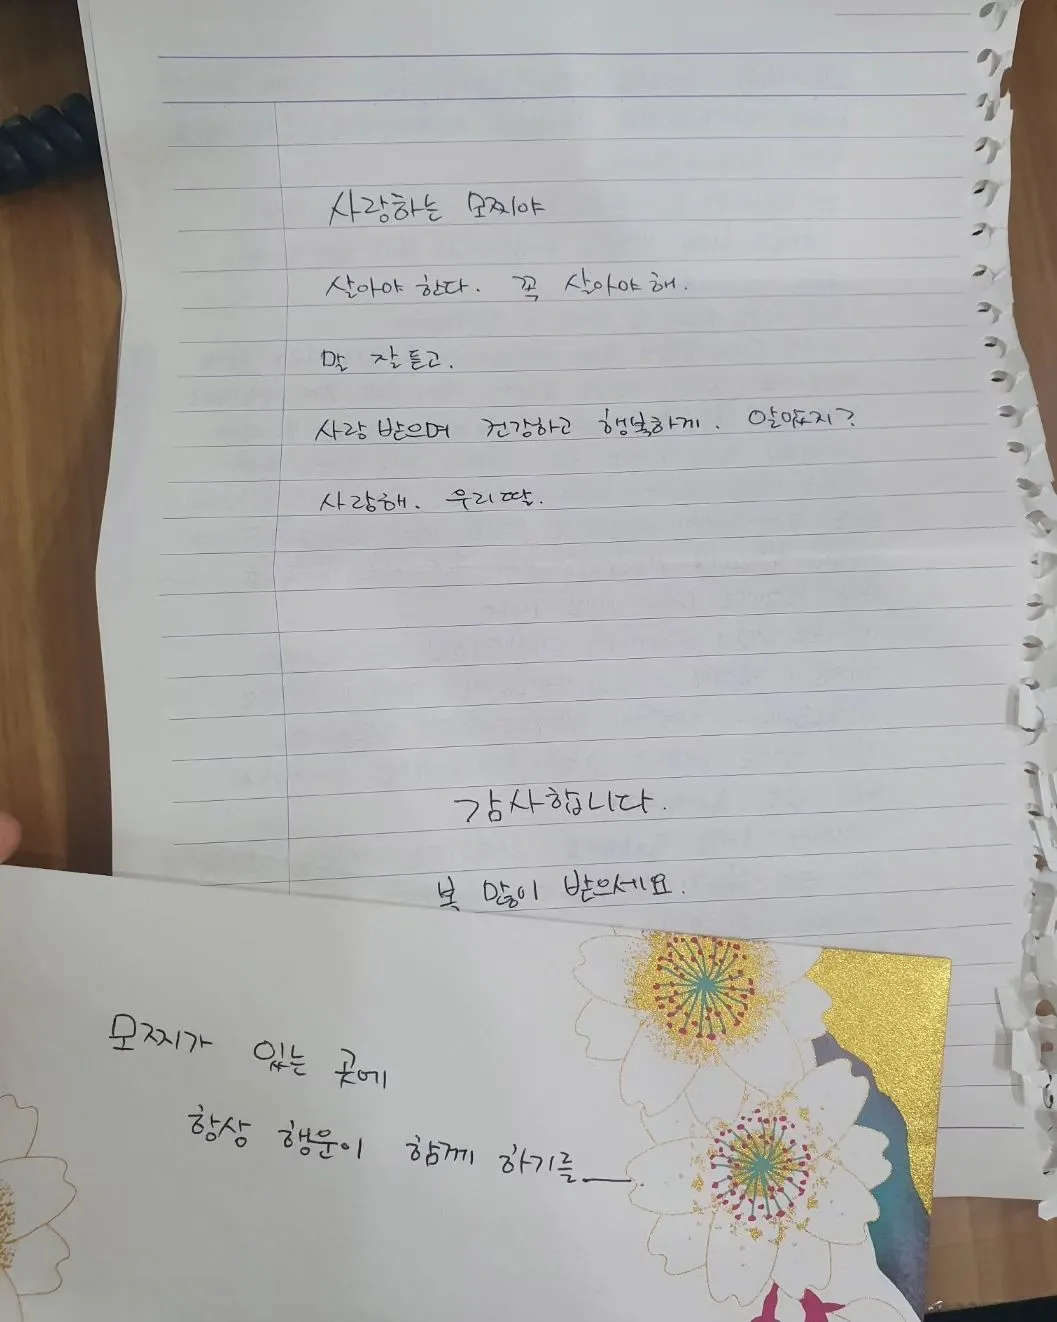 사랑하는 모찌야
살아야 한다. 꼭 살아야 해.
말 잘 듣고.
사랑 받으며 건강하고 행복하게. 알았지?
사랑해. 우리딸.
감사합니다.
복 많이 받으세요.
모찌가 있는 곳에
항상 행운이 함께 하기를